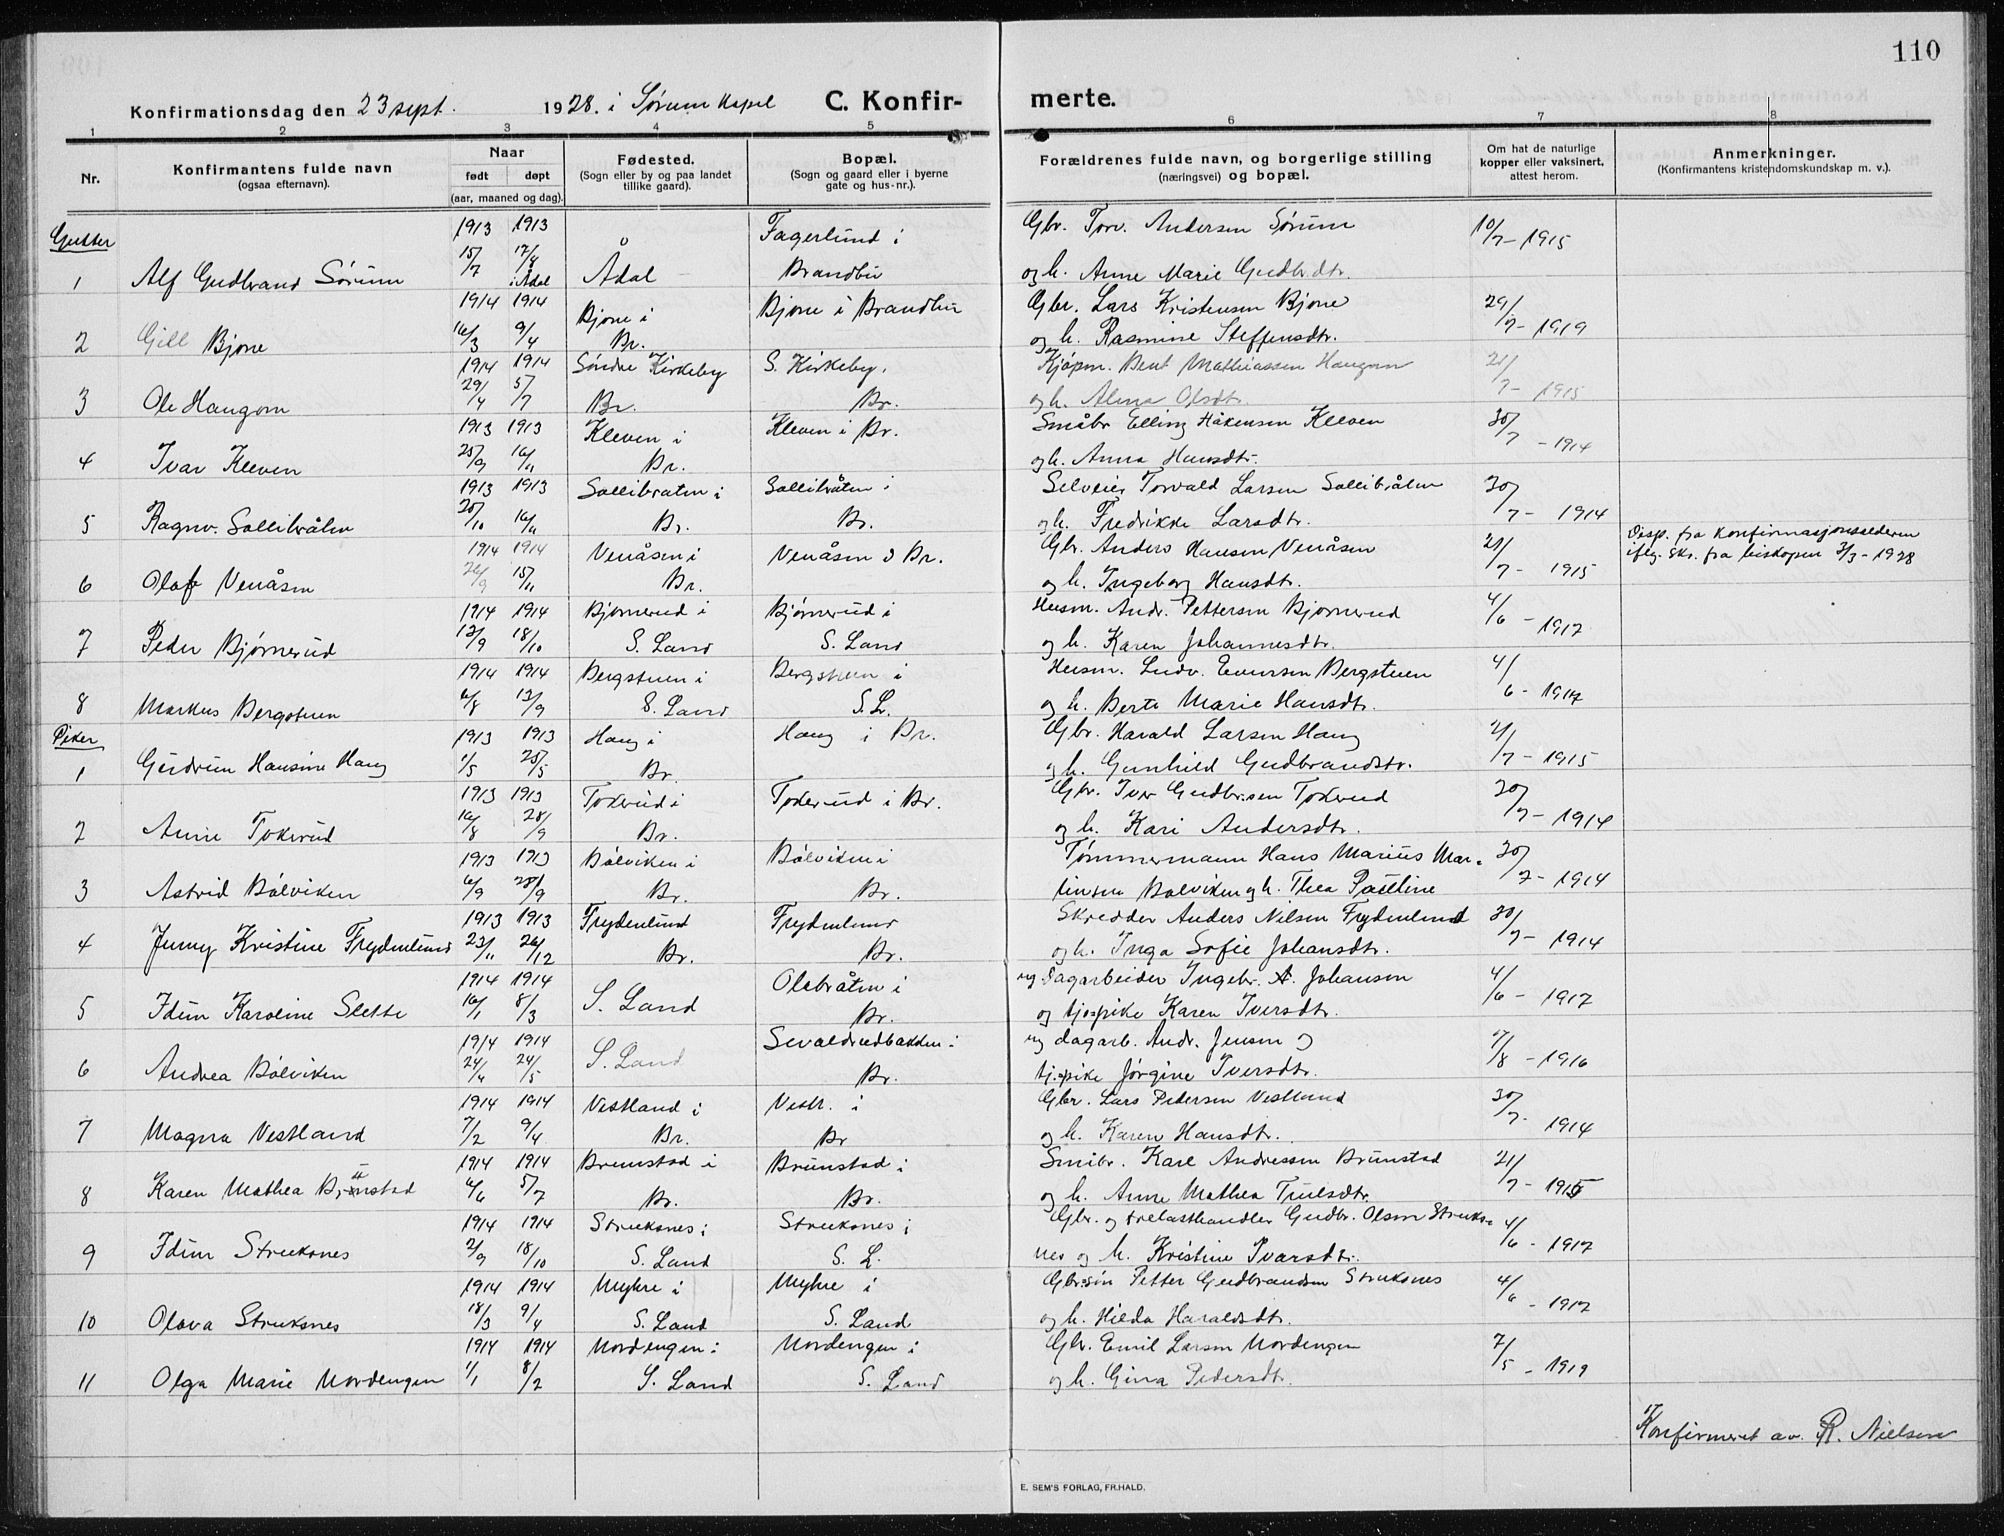 110
Konfirmationsdag den 23 sept. 1928. i Sørum Kapel C. Konfirmerte.
1 2 3 4 5 6 7 8
Nr.
Konfirmantens fulde navn
(ogsaa efternavn).
Naar
født døpt
(aar, maaned og dag).
Fødested.
(Sogn eller by og paa landet
tillike gaard).
Bopæl.
(Sogn og gaard eller i byerne
gate og hus-nr.).
Forældrenes fulde navn, og borgerlige stilling
(næringsvei) og bopæl.
Om hat de naturlige
kopper eller vaksinert,
attest herom.
Anmerkninger.
(Konfirmantens kristendomskundskap m. v.).
Gutter
1913 1913 Fagerlund i Gbr. Torv. Andersen Sørum 10/7 - 1915
1 Alf Gudbrand Sørum 15/7 17/8 i Ådal Ådal Brandbu og h. Anne Marie Gudbr.dtr.
1914 1914 Bjone i Bjone i Brandbu Gbr. Lars Kristensen Bjone 29/7 - 1919
2 Gill Bjone 16/3 9/4 Br. og h. Rasmine Steffensdtr.
1914 1914 Søndre Kirkeby S. Kirkeby. Kjøpm. Bent Mathiassen Haugom 21/7 - 1915
3 Ole Haugom 29/4 5/7 Br. Br. og h. Alma Olsdtr.
1913 1913 Kleven i Kleven i Br. Småbr Elling Håkensen Kleven 30/7 - 1914
4 Ivar Kleven 25/9 16/11 Br. og h. Anna Hansdtr.
1913 1913 Sollibraten i Sollibråten i Selveier Torvald Larsen Sollibråten 30/7 - 1914
5 Ragnv. Sollibråten 20/10 16/11 Br. Br. og h. Fredrikke Larsdtr.
1914 1914 Venåsen i Venåsen i Br. Gbr. Anders Hansen Venåsen 21/7 - 1915 Disp. fra Konfirmasjonsalderen
iflg. skr. fra biskopen 3/3 - 1928
6 Olaf Venåsen 26/9 15/11 Br. og h. Ingeborg Hansdtr.
1914 1914 Bjørnerud i Bjørnerud i Husm. Andr. Pettersen Bjørnerud 4/6 - 1917
7 Peder Bjørnerud 12/9 18/10 S. Land S. Land og h. Karen Johannesdtr.
1914 1914 Bergstuen i Bergstuen i Husm. Ludv. Evensen Bergstuen 4/6 - 1917
8 Markus Bergstuen 6/8 13/9 S. Land S. L. og h. Berte Marie Hansdtr.
Piker
1913 1913 Haug i Haug i Br. Gbr. Harald Larsen Haug 21/7 - 1915
1 Gudrun Hansine Haug 1/5 25/5 Br. og h. Gunhild Gudbrandsdtr.
1913 1913 Tokerud i Tokerud i Br. Gbr. Iver Gudbr.sen Tokerud 30/7 - 1914
2 Anne Tokerud 16/8 28/9 Br. og h. Kari Andersdtr.
1913 1913 Bølviken i Bølviken i Tømmermann Hans Marius Mar- 30/7 - 1914
3 Astrid Bølviken 6/9 28/9 Br. Br. tinsen Bølviken og h. Thea Pauline
1913 1913 Frydenlund Frydenlund Skredder Anders Nilsen Frydenlund 30/7 - 1914
4 Jenny Kristine Frydenlund 23/11 26/12 Br. Br. og h. Inga Sofie Johansdtr.
1914 1914 S. Land Olebråten i ug Dagarbeider Ingebr. A. Johansen 4/6 - 1917
5 Idun Karoline Slette 16/1 8/3 Br. og tj.pike Karen Iversdtr.
1914 1914 S. Land Sevaldrudbakken i ug dagarb. Andr. Jensen og 17/8 - 1916
6 Andrea Bølviken 24/4 24/5 Br. tj.pike Jørgine Iversdtr.
1914 1914 Vestland i Vestl. i Gbr. Lars Pedersen Vestland 30/7 - 1914
7 Magna Vestland 7/2 9/4 Br. Br og h. Karen Hansdtr.
1914 1914 Brunstad i Brunstad i Småbr. Karl Andressen Brunstad 21/7 - 1915
8 Karen Mathea Brunstad 6/6 5/7 Br. Br. og h. Anne Mathea Truelsdtr.
1914 1914 Struksnes i Struksnes i Gbr. og trelasthandler Gudbr. Olsen Struks- 4/6 - 1917
9 Idun Struksnes 2/9 18/10 S. Land S. L. nes og h. Kristine Ivarsdtr.
1914 1914 Myhre i Myhre i Gbr.søn Petter Gudbrandsen Struksnes 4/6 - 1917
10 Olava Struksnes 18/3 9/4 S. Land S. Land og h. Hilda Haraldsdtr.
1914 1914 Nordengen i Nordengen i Gbr. Emil Larsen Nordengen 7/5 - 1919
11 Olga Marie Nordengen 1/1 8/2 S. Land S. Land og h. Gina Pedersdtr.
Konfirmeret av R. Nielsen
E. SEM'S FORLAG, FR.HALD.